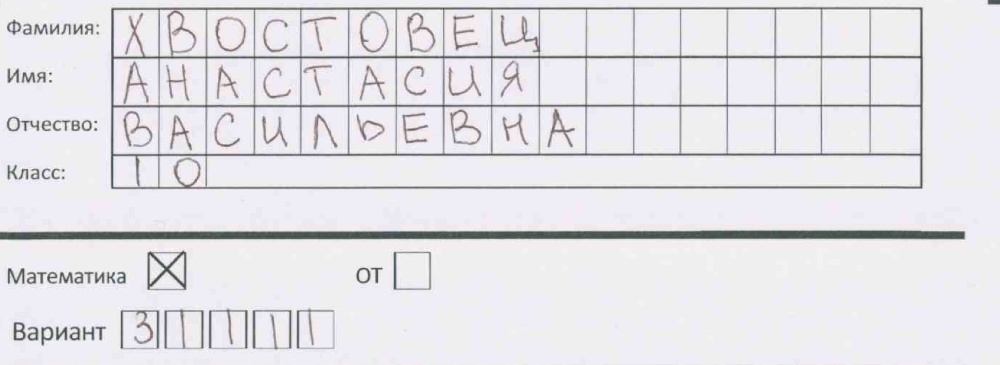 Фамилия: ХВОСТОВЕЦ
Имя: АНАСТАСИЯ
Отчество: ВАСИЛЬЕВНА
Класс: 10
Математика ☒ ОТ ☐
Вариант 31111